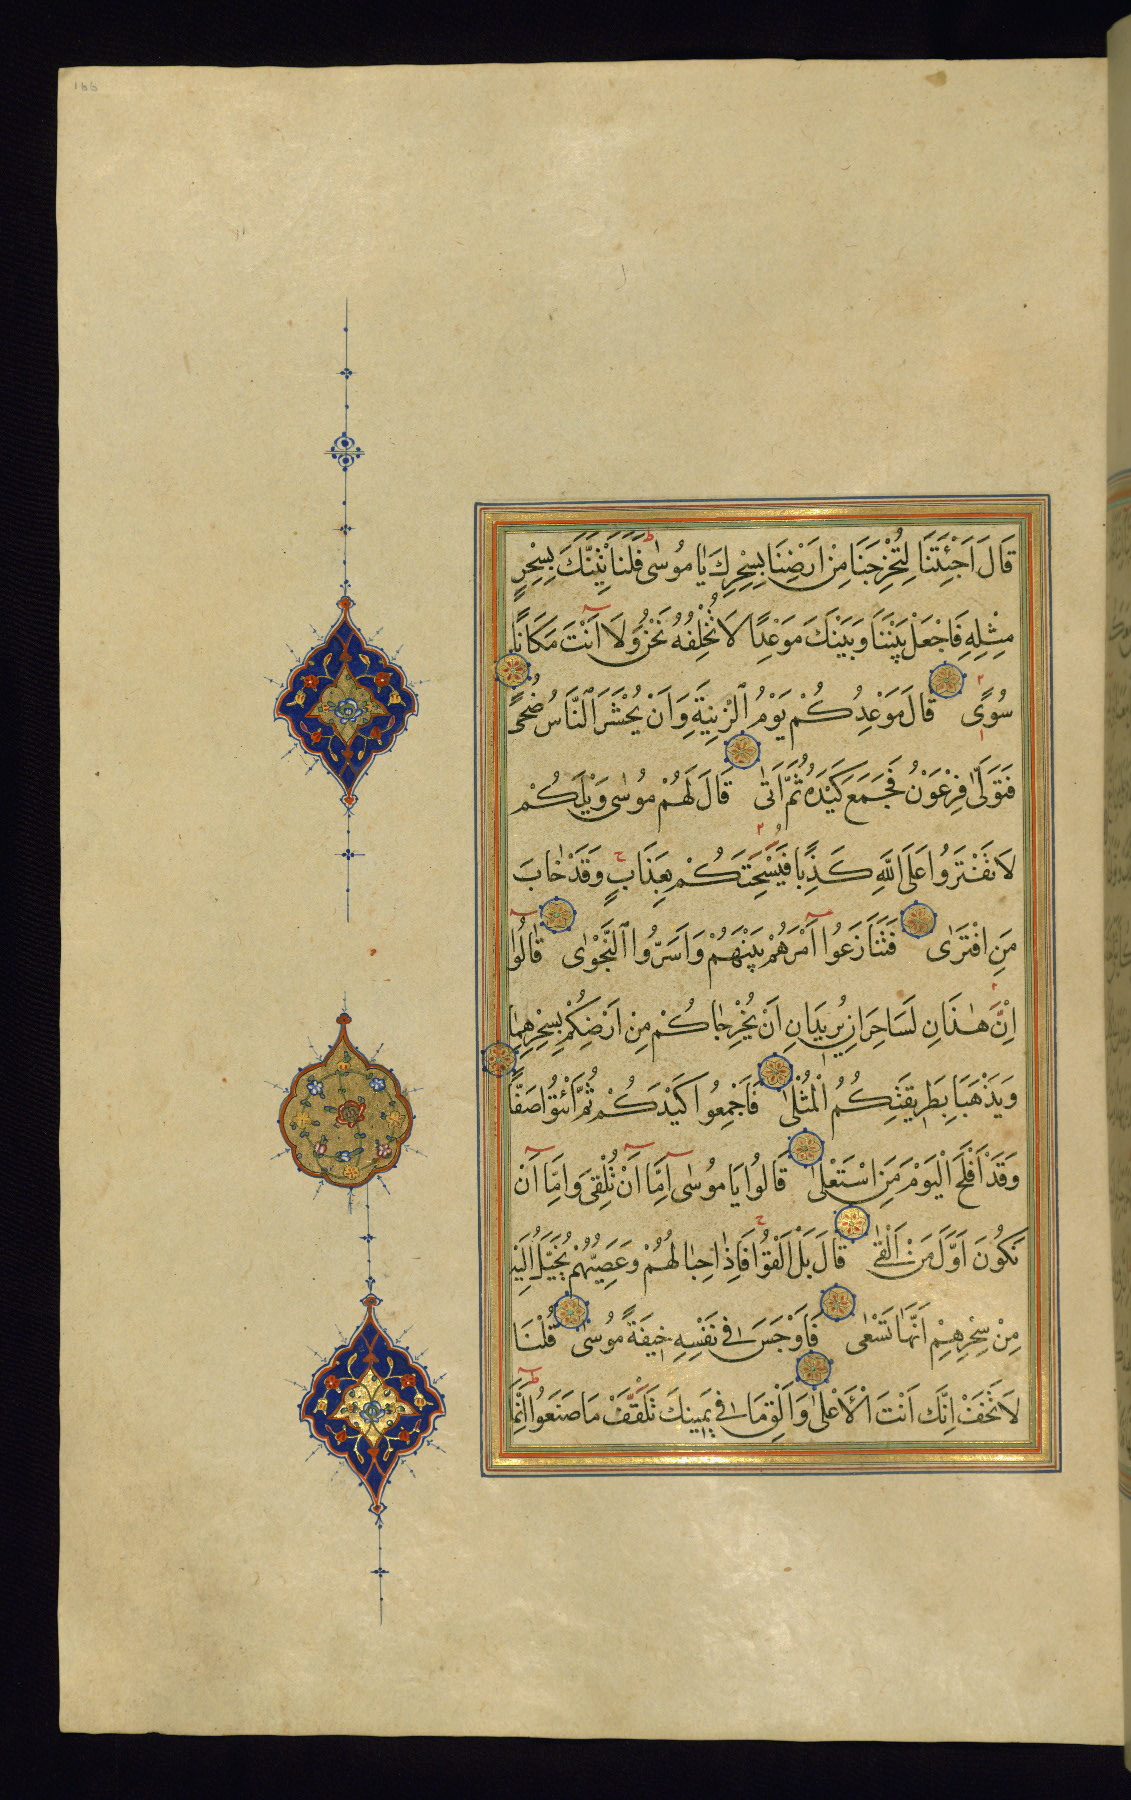 قَالَ اَجِئْتَنَا لِتُخْرِجَنَا مِنْ اَرْضِنَا بِسِحْرِكَ يَا مُوسٰى فَلَنَاْتِيَنَّكَ بِسِحْرٍ
مِثْلِهِ فَاجْعَلْ بَيْنَنَا وَبَيْنَكَ مَوْعِدًا لَا نُخْلِفُهُ نَحْنُ وَلَا اَنْتَ مَكَانًا
سُوًى قَالَ مَوْعِدُكُمْ يَوْمُ الزِّينَةِ وَاَنْ يُحْشَرَ النَّاسُ ضُحًى
فَتَوَلّٰى فِرْعَوْنُ فَجَمَعَ كَيْدَهُ ثُمَّ اَتٰى قَالَ لَهُمْ مُوسٰى وَيْلَكُمْ
لَا تَفْتَرُوا عَلَى اللّٰهِ كَذِبًا فَيُسْحِتَكُمْ بِعَذَابٍ وَقَدْ خَابَ
مَنِ افْتَرٰى فَتَنَازَعُوا اَمْرَهُمْ بَيْنَهُمْ وَاَسَرُّوا النَّجْوٰى قَالُوا
اِنَّ هٰذَانِ لَسَاحِرَانِ يُرِيدَانِ اَنْ يُخْرِجَاكُمْ مِنْ اَرْضِكُمْ بِسِحْرِهِمَا
وَيَذْهَبَا بِطَرِيقَتِكُمُ الْمُثْلٰى فَاَجْمِعُوا كَيْدَكُمْ ثُمَّ ائْتُوا صَفًّا
وَقَدْ اَفْلَحَ الْيَوْمَ مَنِ اسْتَعْلٰى قَالُوا يَا مُوسٰى اِمَّا اَنْ تُلْقِىَ وَاِمَّا اَنْ
نَكُونَ اَوَّلَ مَنْ اَلْقٰى قَالَ بَلْ اَلْقُوا فَاِذَا حِبَالُهُمْ وَعِصِيُّهُمْ يُخَيَّلُ اِلَيْهِ
مِنْ سِحْرِهِمْ اَنَّهَا تَسْعٰى فَاَوْجَسَ فِى نَفْسِهِ خِيفَةً مُوسٰى قُلْنَا
لَا تَخَفْ اِنَّكَ اَنْتَ الْاَعْلٰى وَاَلْقِ مَا فِى يَمِينِكَ تَلْقَفْ مَا صَنَعُوا اِنَّمَا